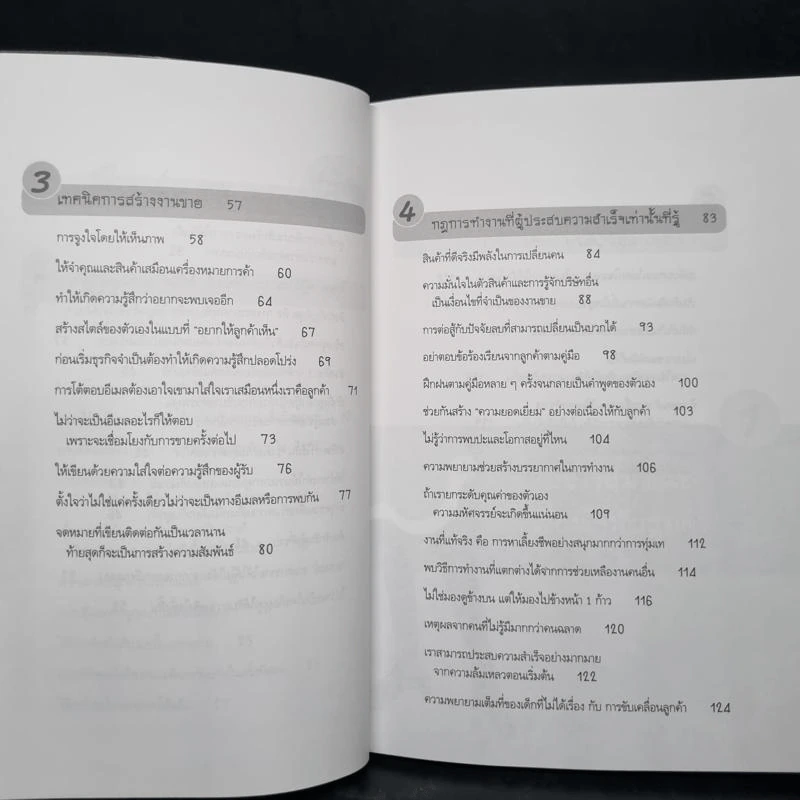 3
เทคนิคการสร้างงานขาย 57
การจูงใจโดยให้เห็นภาพ 58
ให้จำคุณและสินค้าเสมือนเครื่องหมายการค้า 60
ทำให้เกิดความรู้สึกว่าอยากจะพบเจออีก 64
สร้างสไตล์ของตัวเองในแบบที่ "อยากให้ลูกค้าเห็น" 67
ก่อนเริ่มธุรกิจจำเป็นต้องทำให้เกิดความรู้สึกปลอดโปร่ง 69
การโต้ตอบอีเมลต้องเอาใจเขามาใส่ใจเราเสมือนหนึ่งเราคือลูกค้า 71
ไม่ว่าจะเป็นอีเมลอะไรก็ให้ตอบ
เพราะจะเชื่อมโยงกับการขายครั้งต่อไป 73
ให้เขียนด้วยความใส่ใจต่อความรู้สึกของผู้รับ 76
ตั้งใจว่าไม่ใช่แค่ครั้งเดียวไม่ว่าจะเป็นทางอีเมลหรือการพบกัน 77
จดหมายที่เขียนติดต่อกันเป็นเวลานาน
ท้ายสุดก็จะเป็นการสร้างความสัมพันธ์ 80
4
กฎการทำงานที่ผู้ประสบความสำเร็จเท่านั้นที่รู้ 83
สินค้าที่ดีจริงมีพลังในการเปลี่ยนคน 84
ความมั่นใจในตัวสินค้าและการรู้จักบริษัทอื่น
เป็นเงื่อนไขที่จำเป็นของงานขาย 88
การต่อสู้กับปัจจัยลบที่สามารถเปลี่ยนเป็นบวกได้ 93
อย่าตอบข้อร้องเรียนจากลูกค้าตามคู่มือ 98
ฝึกฝนตามคู่มือหลาย ๆ ครั้งจนกลายเป็นคำพูดของตัวเอง 100
ช่วยกันสร้าง "ความยอดเยี่ยม" อย่างต่อเนื่องให้กับลูกค้า 103
ไม่รู้ว่าการพบปะและโอกาสอยู่ที่ไหน 104
ความพยายามช่วยสร้างบรรยากาศในการทำงาน 106
ถ้าเรายกระดับคุณค่าของตัวเอง
ความมหัศจรรย์จะเกิดขึ้นแน่นอน 109
งานที่แท้จริง คือ การหาเลี้ยงชีพอย่างสนุกมากกว่าการทุ่มเท 112
พบวิธีการทำงานที่แตกต่างได้จากการช่วยเหลืองานคนอื่น 114
ไม่ใช่มองดูข้างบน แต่ให้มองไปข้างหน้า 1 ก้าว 116
เหตุผลจากคนที่ไม่รู้มีมากกว่าคนฉลาด 120
เราสามารถประสบความสำเร็จอย่างมากมาย
จากความล้มเหลวตอนเริ่มต้น 122
ความพยายามเต็มที่ของเด็กที่ไม่ได้เรื่อง กับ การขับเคลื่อนลูกค้า 124